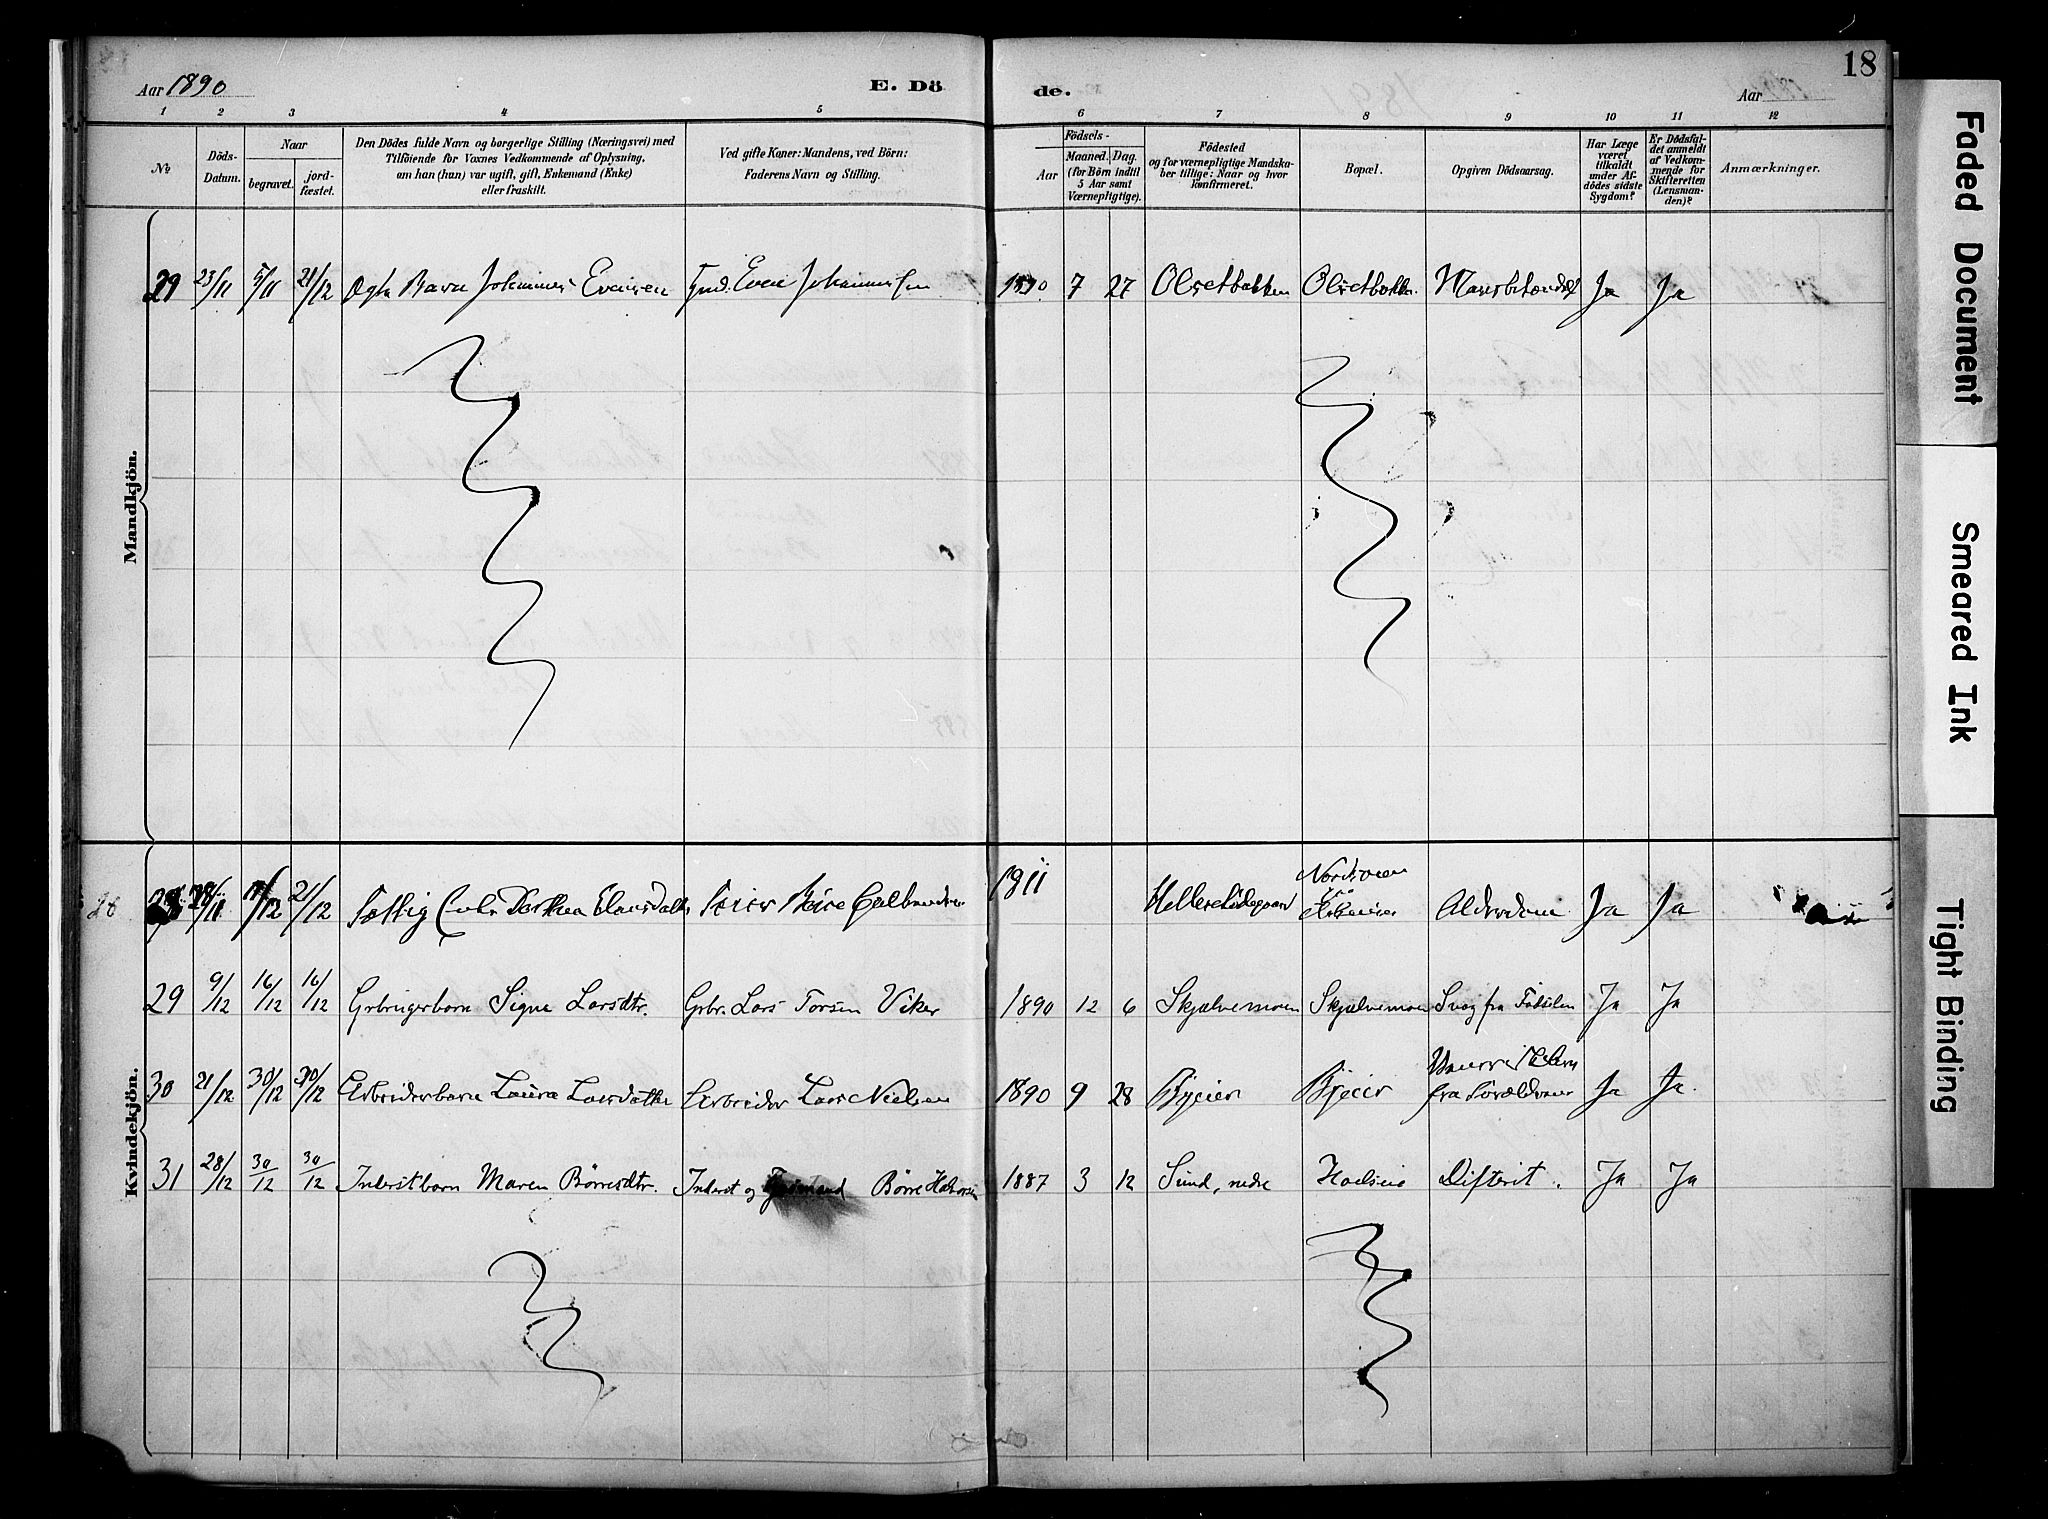 Aar 1890
E. Dö
de.
Aar
18
1 2 3 4 5 6 7 8 9 10 11 12
No
Döds-
Datum.
Naar
begravet.
jord-
fæstet.
Den Dödes fulde Navn og borgerlige Stilling (Næringsvei) med
Tilföiende for Voxnes Vedkommende af Oplysning,
om han (hun) var ugift, gift, Enkemand (Enke)
eller fraskilt.
Ved gifte Koner: Mandens, ved Börn:
Faderens Navn og Stilling.
Födsels-
Aar
Maaned. Dag.
(for Börn indtil
5 Aar samt
Værnepligtige).
Födested
og for værnepligtige Mandska-
ber tillige: Naar og hvor
konfirmeret.
Bopæl.
Opgiven Dödsaarsag.
Har Læge
været
tilkaldt
under Af-
dödes sidste
Sygdom?
Er Dödsfal-
det anmeldt
af Vedkom-
mende for
Skifteretten
(Lensman-
den)?
Anmærkninger.
Mandkjön.
29 23/11 5/11 21/12 Ægte Barn Johannes Evensen Gmd. Even Johannessen 1890 7 27 Olsetbakken Olsetbakken Ja Ja
Kvindekjön.
28 21/12 Dorthea 1811 Alderdom Ja Ja
29 9/12 16/12 16/12 Grbrugerbarn Signe Larsdtr. Grbr. Lars Torsen Viker 1890 12 6 Skjelvemoen Skjelvemoen Svag fra Fødselen Ja Ja
30 21/12 30/12 30/12 Arbeiderbarn Laura Larsdatter Arbeider Lars Nielsen 1890 9 28 Bjeier Bjeier fra Forældrene Ja Ja
31 28/12 30/12 30/12 Inderstbarn Maren Børresdtr. Inderst og Børre Halvorsen 1887 3 12 Sund, nedre Difterit. Ja Ja
Faded Document
Smeared Ink
Tight Binding